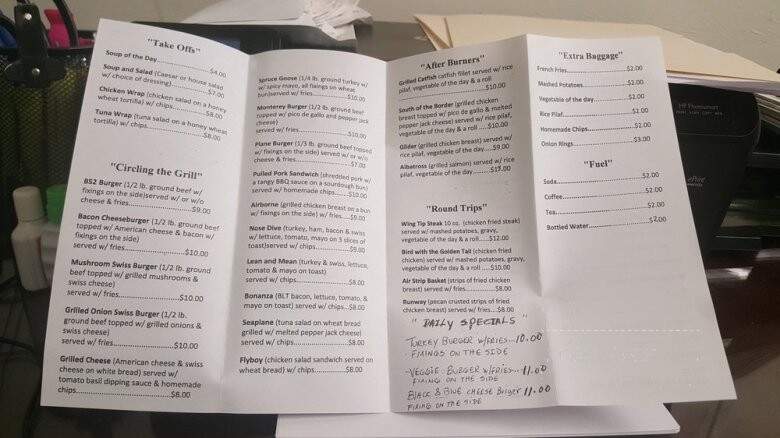 "Take Offs"
Soup of the Day..................$4.00
Soup and Salad (Caesar or house salad
w/ choice of dressing)..................$7.00
Chicken Wrap (chicken salad on a honey
wheat tortilla) w/ chips..................$8.00
Tuna Wrap (tuna salad on a honey wheat
tortilla) w/ chips..................$8.00
"Circling the Grill"
B52 Burger (1/2 lb. ground beef w/
fixings on the side)served w/ or w/o
cheese & fries..................$9.00
Bacon Cheeseburger (1/2 lb. ground beef
topped w/ American cheese & bacon w/
fixings on the side)
served w/ fries..................$10.00
Mushroom Swiss Burger (1/2 lb. ground
beef topped w/ grilled mushrooms &
swiss cheese)
served w/ fries..................$10.00
Grilled Onion Swiss Burger (1/2 lb.
ground beef topped w/ grilled onions &
swiss cheese)
served w/ fries..................$10.00
Grilled Cheese (American cheese & swiss
cheese on white bread) served w/
tomato basil dipping sauce & homemade
chips..................$8.00
Spruce Goose (1/4 lb. ground turkey w/
w/ spicy mayo, all fixings on wheat
bun)served w/ fries..................$10.00
Monterey Burger (1/2 lb. ground beef
topped w/ pico de gallo and pepper jack
cheese)
served w/ fries..................$10.00
Plane Burger (1/3 lb. ground beef topped
w/ fixings on the side) served w/ or w/o
cheese & fries..................$7.00
Pulled Pork Sandwich (shredded pork w/
a tangy BBQ sauce on a sourdough bun)
served w/ homemade chips..........$10.00
Airborne (grilled chicken breast on a bun
w/ fixings on the side) w/ fries.....$9.00
Nose Dive (turkey, ham, bacon & swiss
w/ lettuce, tomato, mayo on 3 slices of
toast)served w/ chips..................$9.00
Lean and Mean (turkey & swiss, lettuce,
tomato & mayo on toast)
served w/ chips..................$8.00
Bonanza (BLT bacon, lettuce, tomato, &
mayo on toast) served w/ chips...$8.00
Seaplane (tuna salad on wheat bread
grilled w/ melted pepper jack cheese)
served w/ chips..................$8.00
Flyboy (chicken salad sandwich served on
wheat bread) w/ chips..................$8.00
"After Burners"
Grilled Catfish catfish fillet served w/ rice
pilaf, vegetable of the day & a roll
..................$10.00
South of the Border (grilled chicken
breast topped w/ pico de gallo & melted
pepper jack cheese) served w/ rice pilaf,
vegetable of the day & a roll .....$10.00
Glider (grilled chicken breast) served w/
rice pilaf, vegetable of the day.....$9.00
Albatross (grilled salmon) served w/ rice
pilaf, vegetable of the day .......$13.00
"Round Trips"
Wing Tip Steak 10 oz. (chicken fried steak)
served w/ mashed potatoes, gravy,
vegetable of the day & a roll.....$12.00
Bird with the Golden Tail (chicken fried
chicken) served w/ mashed potatoes, gravy,
vegetable of the day & a roll .....$10.00
Air Strip Basket (strips of fried chicken
breast) served w/ fries..................$8.00
Runway (pecan crusted strips of fried
chicken breast) served w/ fries.....$8.00
" DAILY SPECIALS "
TURKEY BURGER W/FRIES...10.00
FIXINGS ON THE SIDE
-VEGGIE BURGER W/FRIES...11.00
FIXING ON THE SIDE
BLACK & BLUE CHEESE BURGER 11.00
FIXING ON THE SIDE
"Extra Baggage"
French Fries..................$2.00
Mashed Potatoes..................$2.00
Vegetable of the day..................$2.00
Rice Pilaf..................$1.00
Homemade Chips..................$2.00
Onion Rings..................$3.00
"Fuel"
Soda..................$2.00
Coffee..................$2.00
Tea..................$2.00
Bottled Water..................$2.00
HP Photosmart